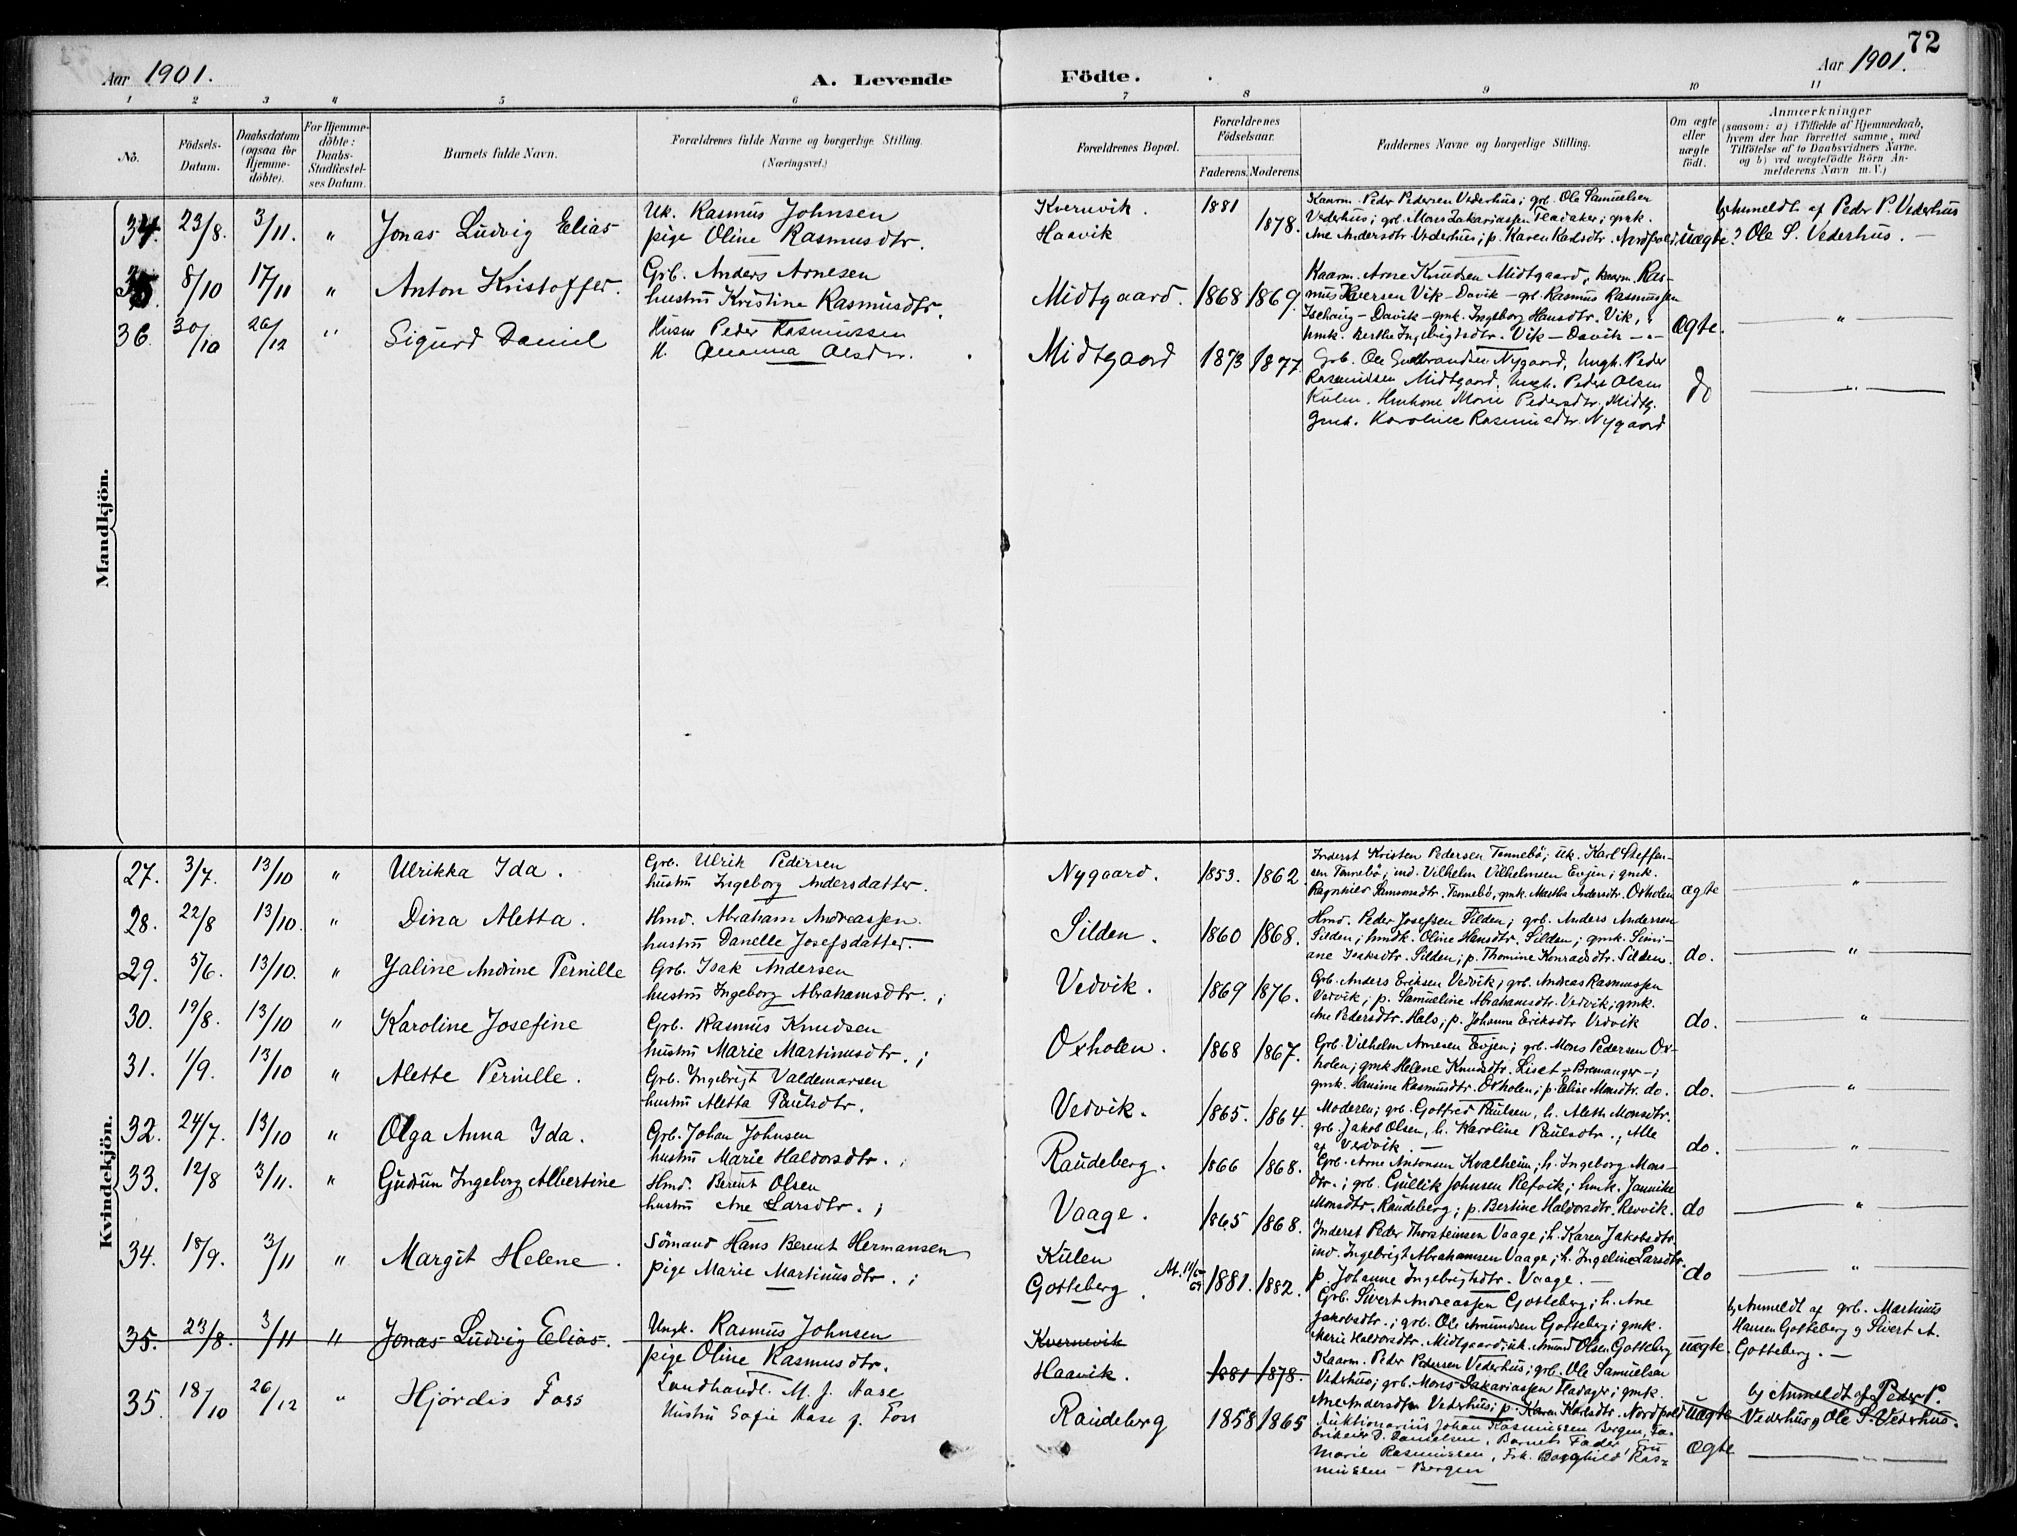 72
Aar 1901.
A. Levende Födte.
Aar 1901.
1 2 3 4 5 6 7 8 9 10 11
No.
Födsels-Datum.
Daabsdatum (ogsaa for Hjemme-döbte).
For Hjemme-döbte: Daabs-Stadfæstel-ses Datum.
Barnets fulde Navn.
Forældrenes fulde Navne og borgerlige Stilling.
(Næringsvei.)
Forældrenes Bopæl.
Forældrenes Födselsaar.
Faderens. Moderens.
Faddernes Navne og borgerlige Stilling.
Om ægte eller uægte födt.
Anmærkninger
(saasom: a) i Tilfælde af Hjemmedaab,
hvem der har forrettet samme, med
Tilföielse af to Daabsvidners Navne.
og b) ved uægtefödte Börn An-
melderens Navn m. V.)
Mandkjön.
34. 23/8. 3/11. " Jonas Ludvig Elias
Uk. Rasmus Johnsen
pige Oline Rasmusdtr.
Kvernvik.
Haavik
1881
1878.
Kaarm. Peder Pedersen Vederhus; grb. Ole Samuelsen
Vederhus; grb. Mons Zakariassen ; gmk.
Ane Andersdtr Vederhus; p. Karen Karlsdtr. Nordpold
uægte
b) Anmeldt af Peder P. Vederhus
Ole S. Vederhus. —
35. 8/10 17/11 " Anton Kristoffer.
Grb. Anders Arnesen
hustru Kristine Rasmusdtr.
Midtgaard. 1868 1869.
Kaarm. Arne Knudsen Midtgaard, kaarm. Ras-
mus Iversen Vik - Davik - grb. Rasmus Rasmussen
Isehaug - Davik - gmk. Ingeborg Hansdtr. Vik,
hmk. Berthe Ingebrigtsdtr. Vik - Davik -
ægte. "
36. 30/10 26/12 " Sigurd Daniel
Husm Peder Rasmussen
H. Olsdtr.
Midtgaard 1873 1877
Grb. Ole Gulbrandsen Nygaard, Ungk. Peder
Rasmussen Midtgaard, Ungk. Peder Olsen
Kulen. Hmkone Marie Pedersdtr. Midtg.
Gmk. Karoline Rasmusdtr. Nygaard
do "
Kvindekjön.
27. 3/7. 13/10 " Ulrikka Ida.
Grb. Ulrik Pedersen
hustru Ingeborg Andersdatter.
Nygaard. 1853. 1862
Inderst Kristen Pedersen Tennebö; uk. Karl Steffen-
sen Tennebö; ind. Vilhelm Vilhelmsen Evjen; gmk.
Ragnhild Samsonsdtr. Tennebö, gmk. Martha Andersdtr. Oxholen
ægte "
28. 22/8 13/10. " Dina Aletta.
Hmd. Abraham Andreassen.
hustru Danelle Josefsdatter.
Silden. 1860 1868.
Hmd. Peder Josefsen Silden; grb. Anders Andersen
Silden; hmdk. Oline Hansdtr. Silden; gmk. Simi-
ane Isaksdtr. Silden; p. Thomine Konradsdtr. Silden.
do. "
29. 5/6. 13/10. " Jaline Andrine Pernille
Grb. Isak Andersen
hustru Ingeborg Abrahamsdtr.;
Vedvik. 1869 1876.
Grb. Anders Eriksen Vedvik; grb. Andreas Rasmussen
Vedvik; p. Samueline Abrahamsdtr. Vedvik; gmk.
Ane Pedersdtr. Hals; p. Johanne Eriksdtr Vedvik
do. "
30. 19/8. 13/10 " Karoline Josefine
Grb. Rasmus Knudsen
hustru Marie Martinusdtr.;
Oxholen. 1868 1867.
Grb. Vilhelm Arnesen Evjen; grb. Mons Pedersen Ox-
holen; gmk Helene Knudsdtr. Liset - Bremanger -;
gmk. Hansine Rasmusdtr. Oxholen; p. Elise Monsdtr. do.
do. "
31. 1/9. 13/10 " Alette Pernille.
Grb. Ingebrigt Valdemarsen
hustru Aletta Paulsdtr.
Vedvik. 1865. 1864.
Moderen; grb. Gotfred Paulsen, h. Aleth. Monsdtr.
grb. Jakob Olsen, h. Karoline Paulsdtr., Alle
af Vedvik —
do. "
32. 24/7. 13/10 " Olga Anna Ida.
Grb. Johan Johnsen
hustru Marie Haldorsdtr.;
Raudeberg. 1866 1868.
Grb. Arne Antonsen Kvalheim; h. Ingeborg Mons-
dtr.; grb. Gullik Johnsen Refvik; hmk. Jannike
Monsdtr. Raudeberg; p. Bertine Haldorsdtr. Revvik.
do "
33. 12/8 3/11. " Gudrun Ingeborg Albertine
Hmd. Berent Olsen
hustru Ane Larsdtr.;
Vaage. 1865 1868.
Inderst Peder Thorsteinsen Vaage; h. Karen Jakobsdtr.
ind. Ingebrigt Abrahamsen Vaage; h. Ingeline Larsdtr.
p. Johanne Ingebrigtsdtr. Vaage. —
do "
34. 18/9. 3/11 " Margit Helene.
Sömand Hans Berent Hermansen
pige Marie Martinusdtr.;
Kulen
Gotteberg. 1881. 1882.
Grb. Sivert Andreassen Gotteberg; h. Ane
Jakobsdtr.; grb. Ole Amundsen Gotteberg; gmk.
Marie Haldorsdtr. Midtgaard; uk. Amund Olsen Gotteberg
uægte.
b) Anmeldt af grb. Martinus
Hansen Gotteberg og Sivert A.
Gotteberg. —
35. 23/8. 3/11 " Jonas Ludvig Elias.
Ungk. Rasmus Johnsen
pige Oline Rasmusdtr.
Kvernevik
Haavik. 1881 1878.
Kaarm. Peder Pedersen Vederhus; grb. Ole Samuelsen
Vederhus; grb. Mons Sakariassen ; gmk.
Ane Andersdtr Vederhus; p. Karen Karlsdtr. Nordpold
uægte
b) Anmeldt af Peder P.
Vederhus og Ole S. Vederhus.
35 18/10 26/12 " Hjördis Foss
Landhandl. M. J. Aase
Hustru Sofie Aase f. Foss
Raudeberg 1858 1865
Auktionarius Johan Rasmussen Bergen, Fa-
brikeier D. Danielsen, Barnets Fader, Fru
Marie Rasmussen, Frk. Borghild Ras-
mussen - Bergen
ægte "